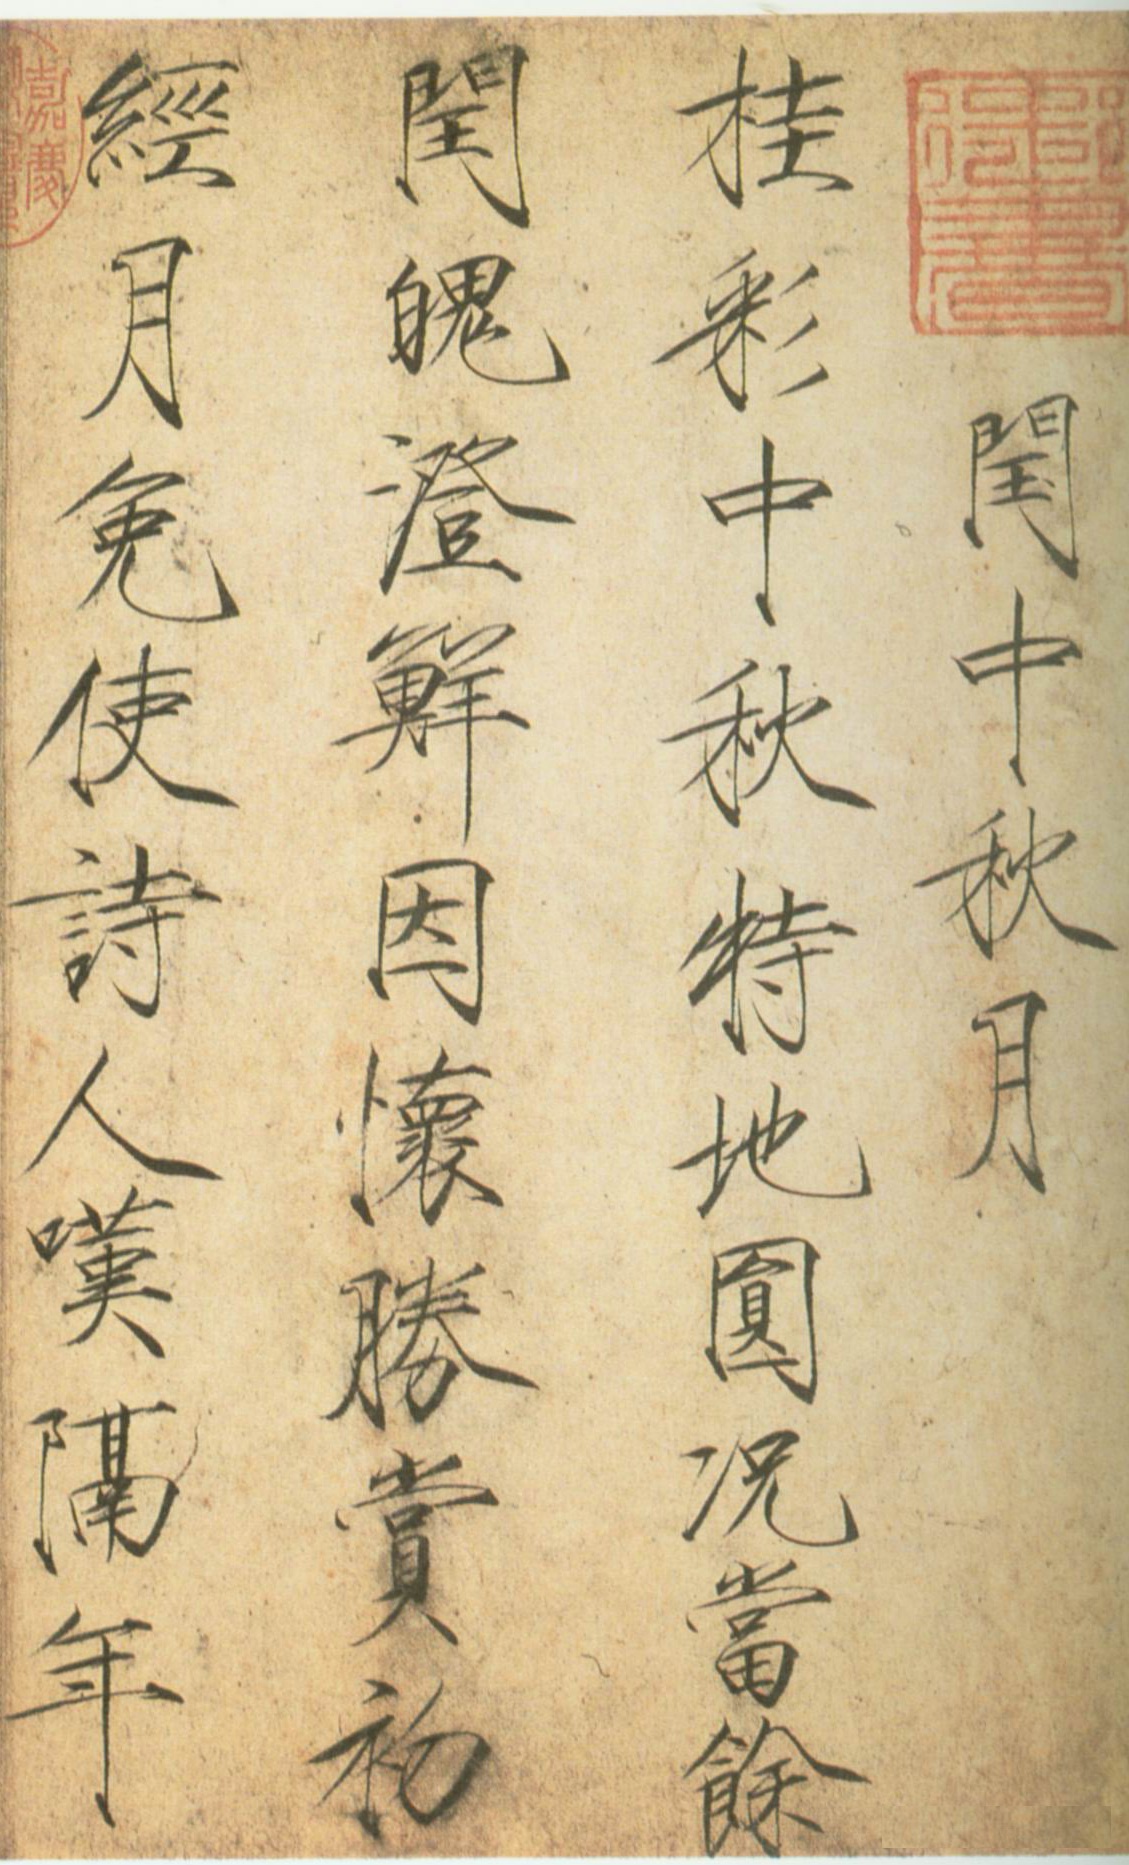 閏中秋月
桂彩中秋特地圓況當餘
閏魄澄鮮因懷勝賞初
經月免使詩人嘆隔年
御書
嘉慶